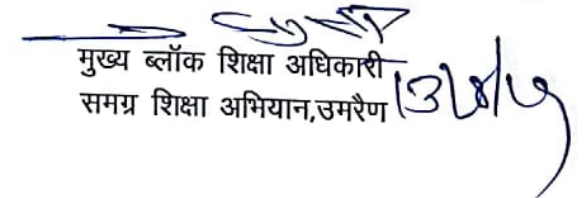 मुख्य ब्लॉक शिक्षा अधिकारी
समग्र शिक्षा अभियान,उमरैण